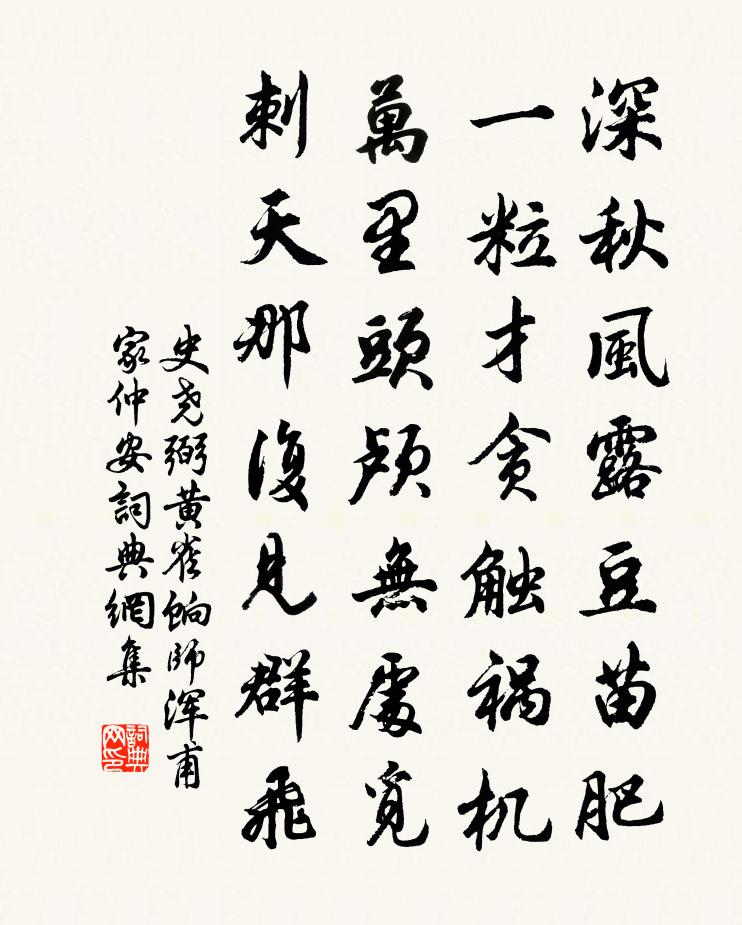 深秋風露豆苗肥
一粒才貪触祸机
萬里頭颅無處覓
刺天那復見群飛
史尧弼黄雀餉師浑甫
家仲安詞典網集
詞典网印